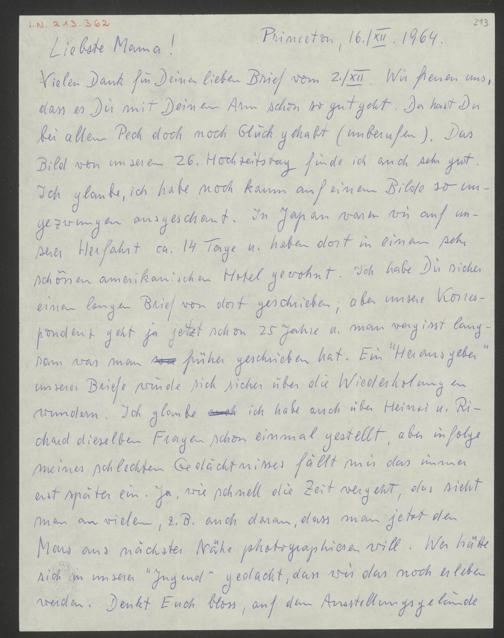 I.N. 213.362
213
Princeton, 16./XII. 1964.
Liebste Mama!
Vielen Dank für Deinen lieben Brief vom 2./XII. Wir freuen uns,
dass es Dir mit Deinem Arm schon so gut geht. Da hast Du
bei allem Pech doch noch Glück gehabt (unberufen). Das
Bild von unserem 26. Hochzeitstag finde ich auch sehr gut.
Ich glaube, ich habe noch kaum auf einem Bilde so un-
gezwungen ausgeschaut. In Japan waren wir auf un-
serer Herfahrt ca. 14 Tage u. haben dort in einem sehr
schönen amerikanischen Hotel gewohnt. Ich habe Dir sicher
einen langen Brief von dort geschrieben, aber unsere Korres-
pondenz geht ja jetzt schon 25 Jahre u. man vergisst lang-
sam was man früher geschrieben hat. Ein "Herausgeber"
unserer Briefe würde sich sicher über die Wiederholungen
wundern. Ich glaube ich habe auch über Heinzi u. Ri-
chard dieselben Fragen schon einmal gestellt, aber infolge
meines schlechten Gedächtnisses fällt mir das immer
erst später ein. Ja, wie schnell die Zeit vergeht, das sieht
man an vielem, z.B. auch daran, dass man jetzt den
Mars aus nächster Nähe photographieren will. Wer hätte
sich in unserer "Jugend" gedacht, dass wir das noch erleben
werden. Denkt Euch bloss, auf dem Ausstellungsgelände